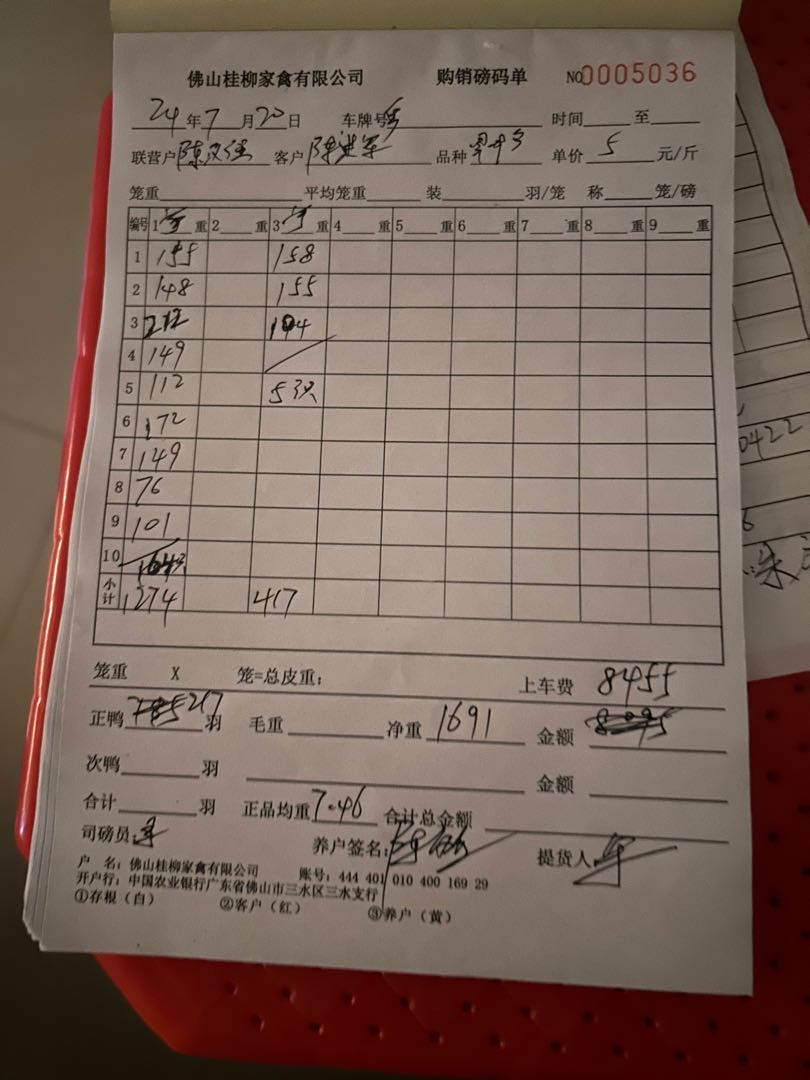 佛山桂柳家禽有限公司 购销磅码单 NO 0005036
24年7月20日 车牌号 时间 至
联营户 陈汉强 客户 陈进军 品种 单价 5 元/斤
笼重 平均笼重 装 羽/笼 称 笼/磅
编号 1 重 2 重 3 重 4 重 5 重 6 重 7 重 8 重 9 重
1 155 158
2 148 155
3 212 104
4 149
5 112 5只
6 172
7 149
8 76
9 101
10
小计 1274 417
笼重 X 笼=总皮重: 上车费 8455
正鸭 217 羽 毛重 净重 1691 金额
次鸭 羽 金额
合计 羽 正品均重 7.46 合计总金额
司磅员: 养户签名: 提货人
户 名: 佛山桂柳家禽有限公司 账号: 444 401 010 400 169 29
开户行: 中国农业银行广东省佛山市三水区三水支行
①存根(白) ②客户(红) ③养户(黄)
0422
6